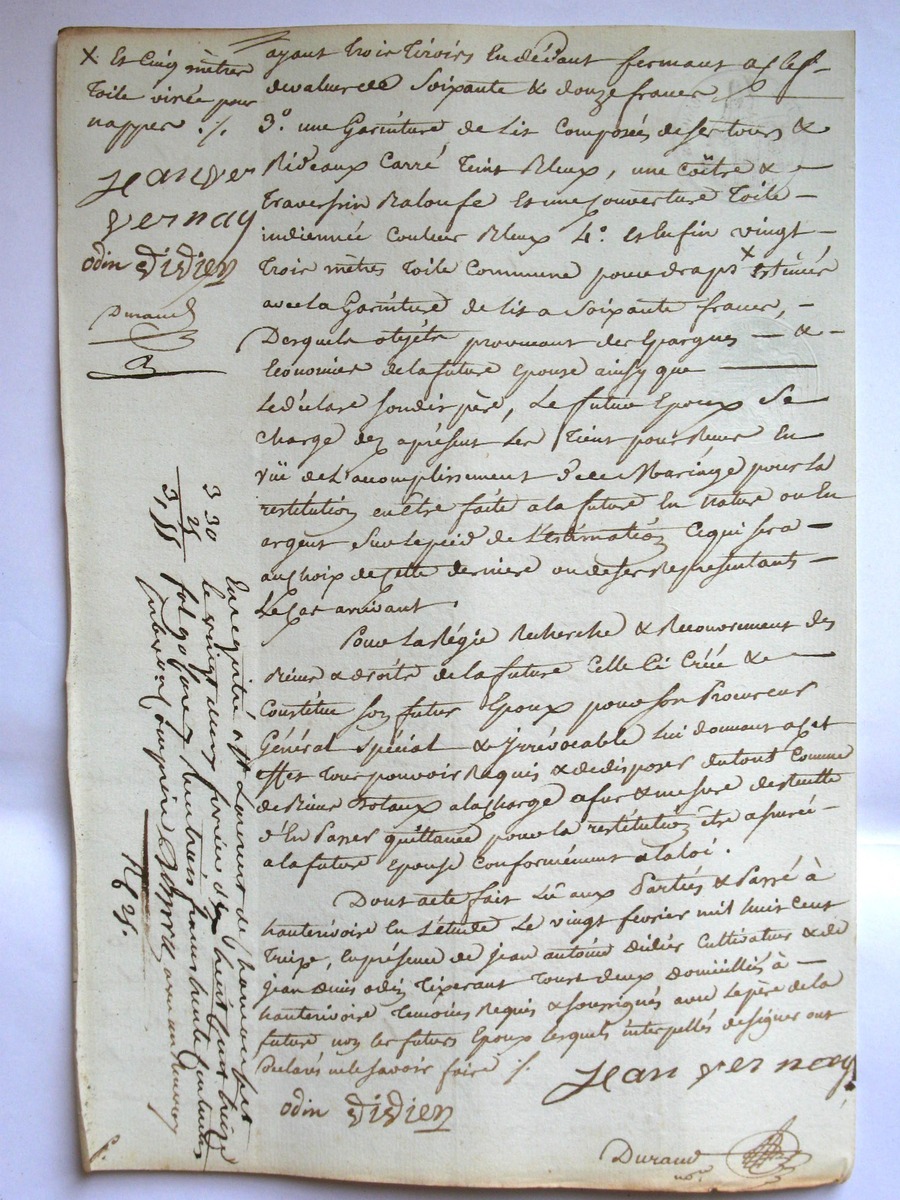 X Et Cinq mètres
Toile virée pour
nappes ./.
jean ver
vernay
odin Didier
Durand
ayant trois tiroirs en dévant fermant a clef
de valeur de Soixante & douze francs
3.º une Garniture de Lit Composée de ses tours &
Rideaux Carré teint Bleux, une Coitre &
Traversin Baloufe Et une Couverture Toile
indiennée Couleur Bleux 4.º et Enfin vingt
trois mètres toile Commune pour draps X Estimés
avec la Garniture de lit a Soixante francs,
Desquels objéts provenant des Epargnes &
Economies de la future Epouse ainsy que
Le déclare Sondit père, Le futur Epoux Se
Charge dez aprésent Les tient pour Reçus En
vüe de L'acomplissement dud. Mariage pour la
restitution en Etre faite a la future En nature ou En
argent Sur le pied de L'Estimation Ce qui sera
au choix de Cette derniere ou de ses Représentants
Le Cas arrivant.
Pour La Régie Recherche & Recouvrement des
Biens & droits de la future Celle Ci Créé &
Constitue Son futur Epoux pour Son Procureur
Général Spécial & irrévocable Lui donnant a cet
effet tous pouvoirs Requis & de disposer du tout Comme
de Biens Dotaux a la charge a fur & mesure de Recette
d'En Passer quittance pour la restitution être assurée
a la future Epouse Conformément a la loi.
Dont acte fait Lû aux Parties & Passé à
hauterivoire En L'étude Le vingt février mil huit Cent
treize, En présence de jean antoine Didier Cultivateur & de
jean Denis odin Tixerant tous deux Domiciliés à
hauterivoire Témoins Requis & Soussignés avec Le père de la
future non les futurs Epoux lesquels interpellés de signer ont
Déclarés ne le Savoir faire ./.
jean vernay
odin Didier
Durand
n.re
Enregistré à St Laurent de Chamousset
le vingt deux février 1813 huit Cent treize
fol 90
3 30
25
3,55